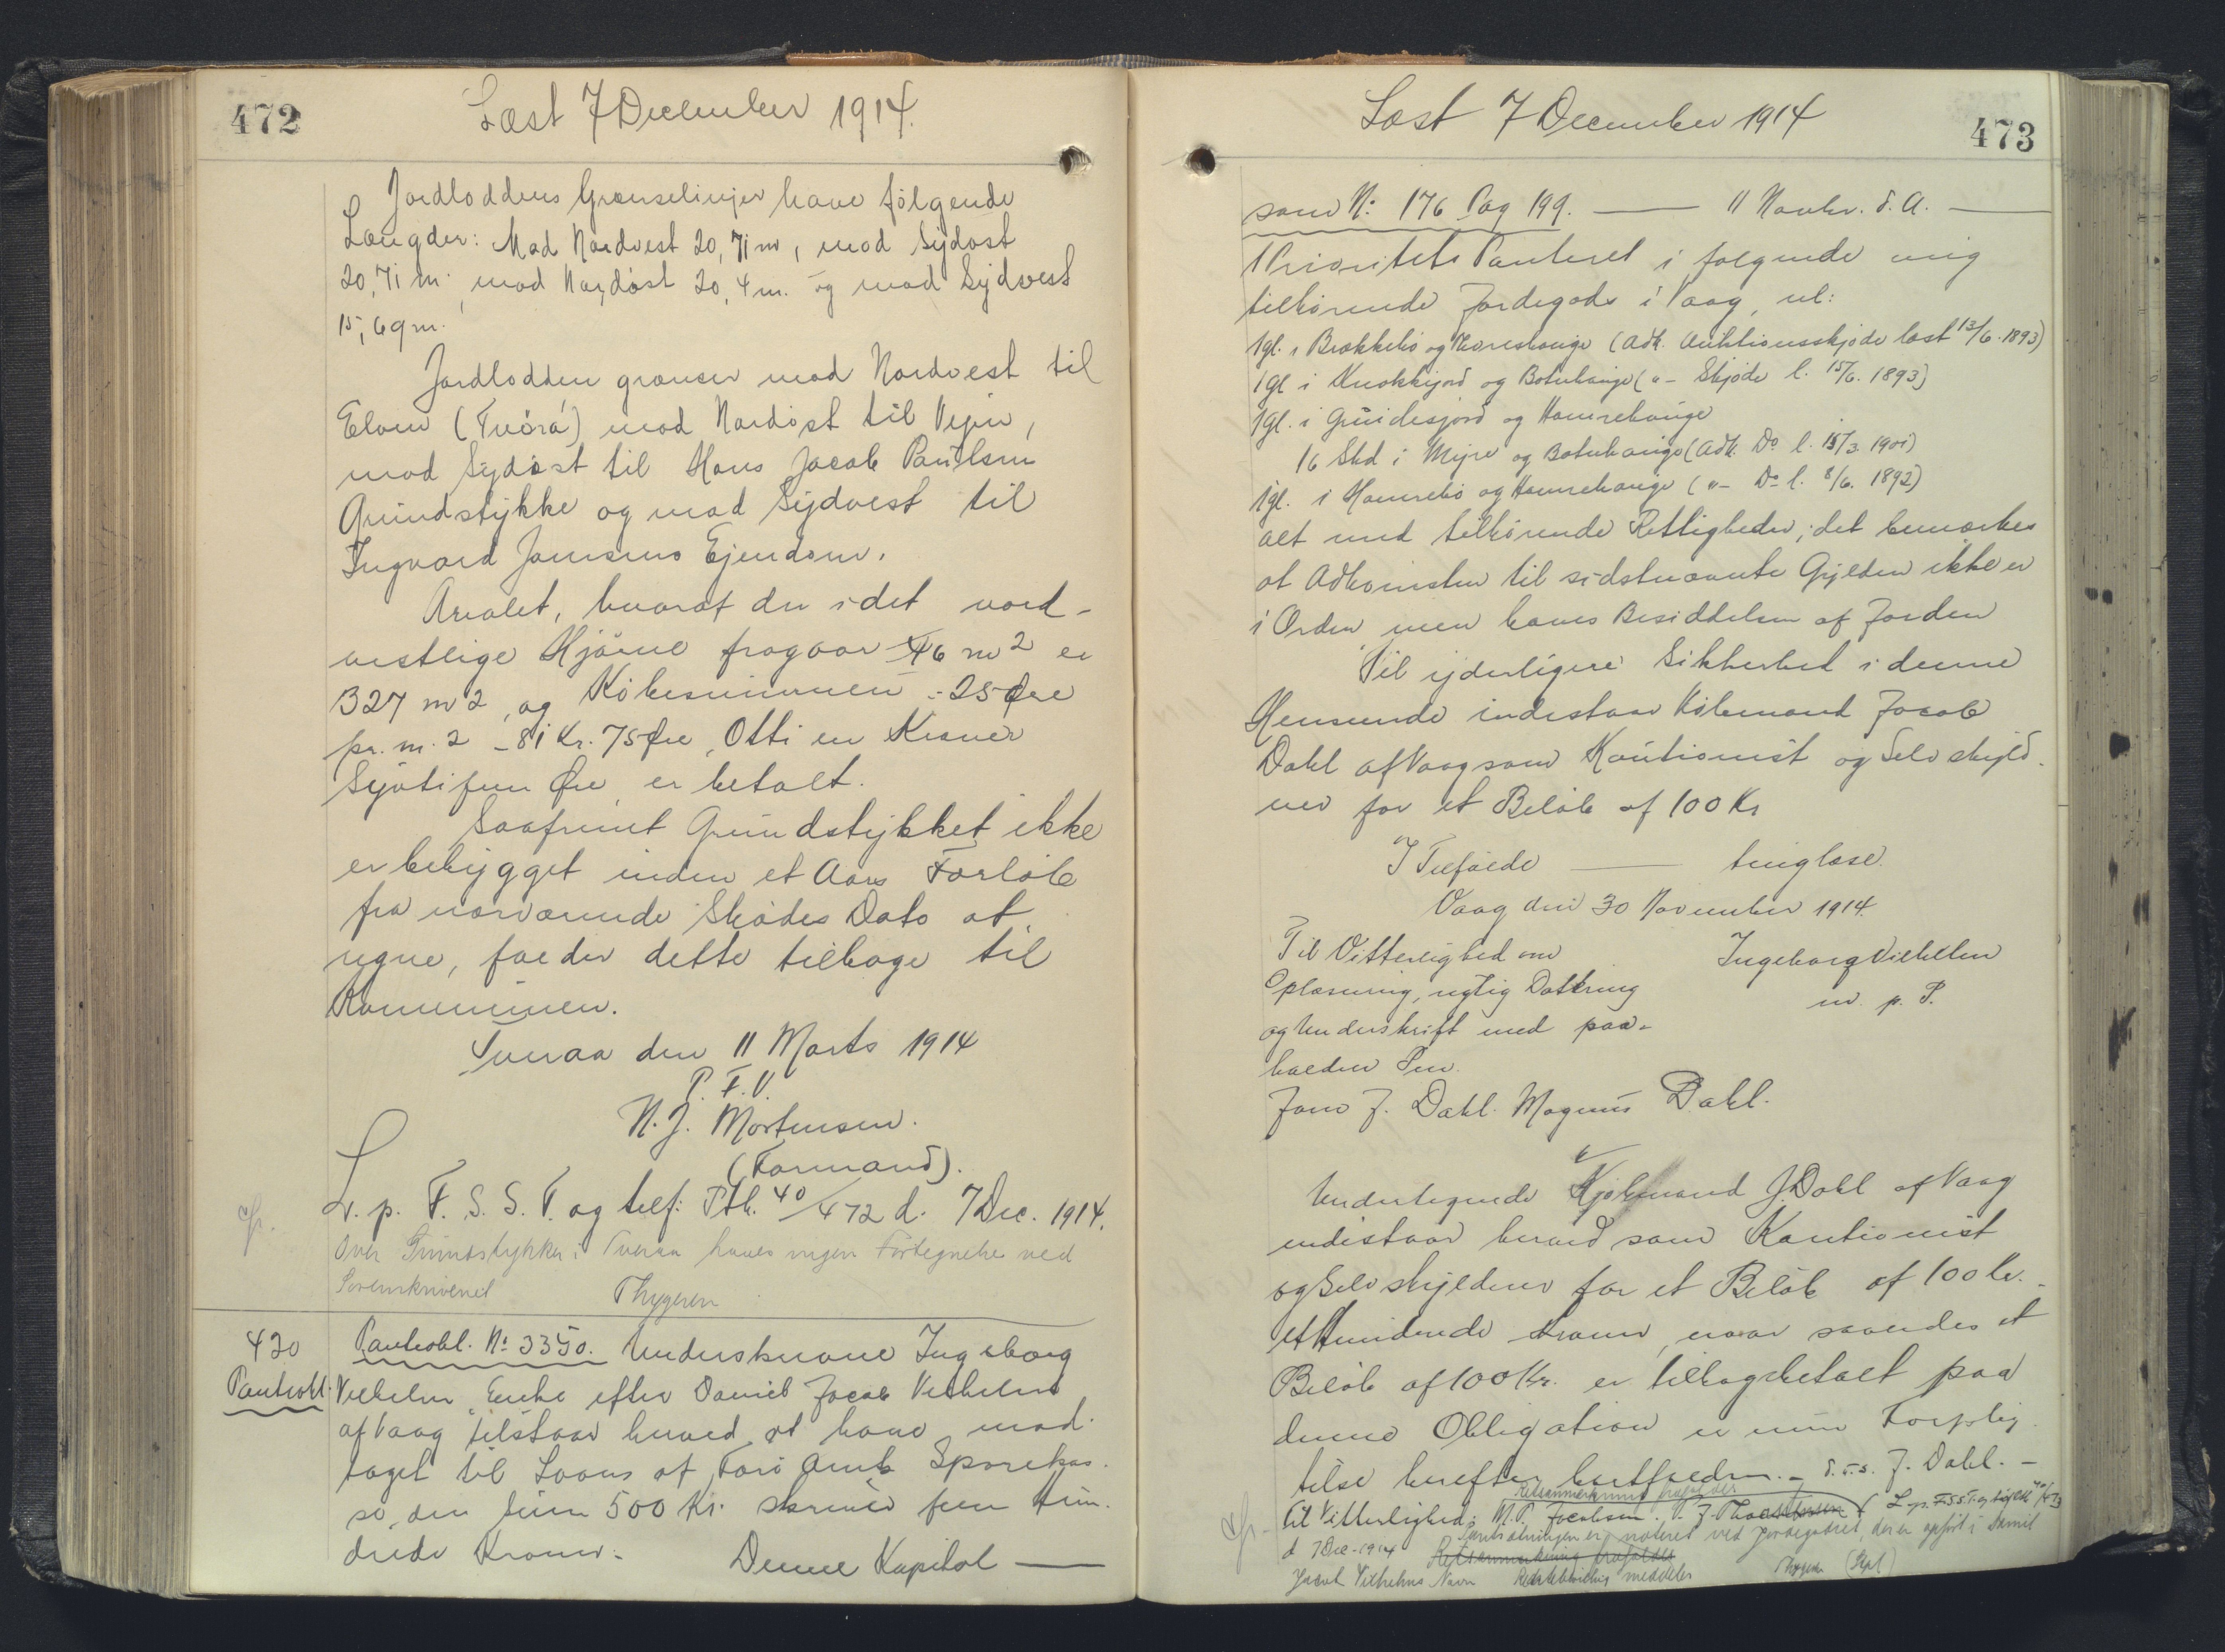 472
Læst 7 December 1914.
Jordloddens Grænselinjer have følgende
Længder: Mod Nordvest 20,71 m, mod Sydøst
20,71 m. mod Nordøst 20,4 m. og mod Sydvest
15,69 m.
Jordlodden grænser mod Nordvest til
Elven (Tvórá) mod Nordøst til Vejen,
mod Sydøst til Hans Jacob Poulsens
Grundstykke og mod Sydvest til
Ingvard Jensens Ejendom.
Arealet, hvoraf der i det nord-
vestlige Hjørne fragaar 46 m2 er
327 m2, og Købesummen - 25 Øre
pr. m. 2 - 81 Kr. 75 Øre, Otti en Kroner
Syvtifem Øre er betalt.
Saafremt Grundstykket ikke
er bebygget inden et Aars Forløb
fra nærværende Skødes Dato at
regne, falder dette tilbage til
Kommunen.
Tveraa den 11 Marts 1914
P. F. V.
N. J. Mortensen.
(Formand).
L. p. F. S. S. T. og tilf: Ptb. 40/472 d. 7 Dec. 1914.
Over Grundstykker i Tveraa haves ingen Fortegnelse ved
Sorenskriveriet
Thygesen
420
Pantobl. No 3350. Underskrevne Ingeborg
Pantobl. Vilhelm Enke efter Daniel Jacob Vilhelm
af Vaag tilstaar herved at have mod-
taget til Laans af Færø Amts Sparekas-
se, den Sum 500 Kr. skriver fem Hun-
drede Kroner.
Denne Kapital
473
Læst 7 December 1914
som No 176 Pag 199. 11 Novbr. d. A.
1 Prioritets Panteret i følgende mig
tilhørende Jordegods i Vaag, nl:
1 gl. i Brekkebø og (Adk. Auktionsskjøde læst 13/6. 1893)
1 gl i og Botnhauge ("- Skjøde l. 15/6. 1893)
1 gl. i og Hamrehauge
16 Skd i Myre og Botnhauge (Adk. Do l. 15/3 1901)
1 gl. i Hamrebø og Hamrehauge ("- Do l. 8/6. 1892)
alt med tilhørende Rettigheder; det bemærkes
at Adkomsten til sidstnævnte Gylden ikke er
i Orden men haves Besiddelsen af Jorden
Til yderligere Sikkerhed i denne
Henseende indestaar Købmand Jacob
Dahl af Vaag som Kautionist og Selvskyld-
ner for et Beløb af 100 Kr
I Tilfælde tinglæse.
Vaag den 30 November 1914.
Til Vitterlighed om
Ingeborg Vilhelm
Oplæsning, rigtig Datering
m. p. P.
og Underskrift med paa-
holden Pen.
Jens J. Dahl. Magnus Dahl.
Undertegnede Kjøbmand J. Dahl af Vaag
indestaar herved som Kautionist
og Selvskyldner for et Beløb af 100 Kr. -
ethundrede Kroner, naar saaledes et
Beløb af 100 Kr. er tilbagebetalt paa
denne Obligation er min Forplig-
telse herefter bortfalden. - d. u. s. J. Dahl. -
Retsanmærkning frafalder
Til Vitterlighed: M. P. Jacobsen. L. p. F. S. S. T. og tilf. Ptb. 40/473
Pantsætningen er noteret ved Jordegodset, der er opført i Daniel
d 7 Dec. 1914 Retsanmærkning frafaldes
Jacob Vilhelms Navn meddeles Thygesen